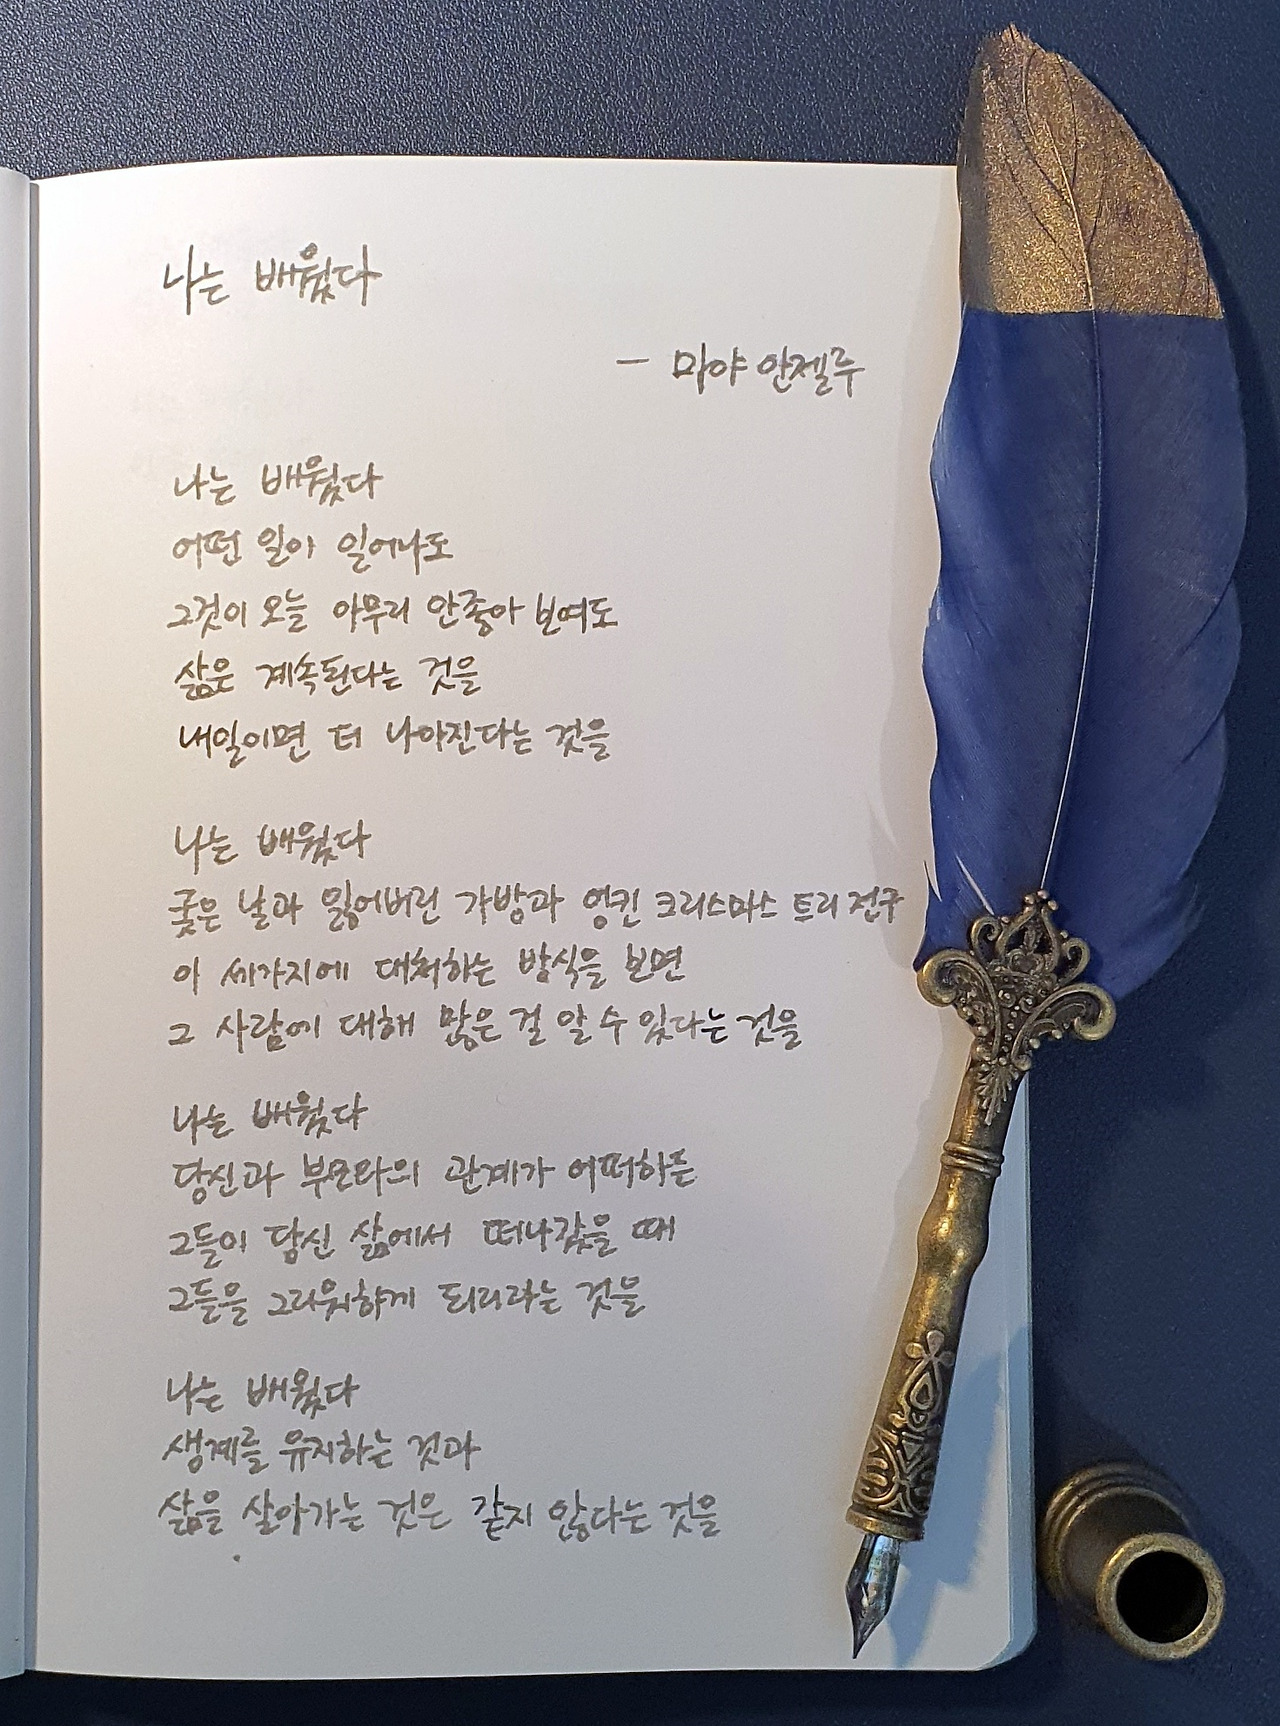 나는 배웠다
- 마야 안젤루
나는 배웠다
어떤 일이 일어나도
그것이 오늘 아무리 안좋아 보여도
삶은 계속된다는 것을
내일이면 더 나아진다는 것을
나는 배웠다
궂은 날과 잃어버린 가방과 엉킨 크리스마스 트리 전구
이 세가지에 대처하는 방식을 보면
그 사람에 대해 많은 걸 알 수 있다는 것을
나는 배웠다
당신과 부모와의 관계가 어떠하든
그들이 당신 삶에서 떠나갔을 때
그들을 그리워하게 되리라는 것을
나는 배웠다
생계를 유지하는 것과
삶을 살아가는 것은 같지 않다는 것을